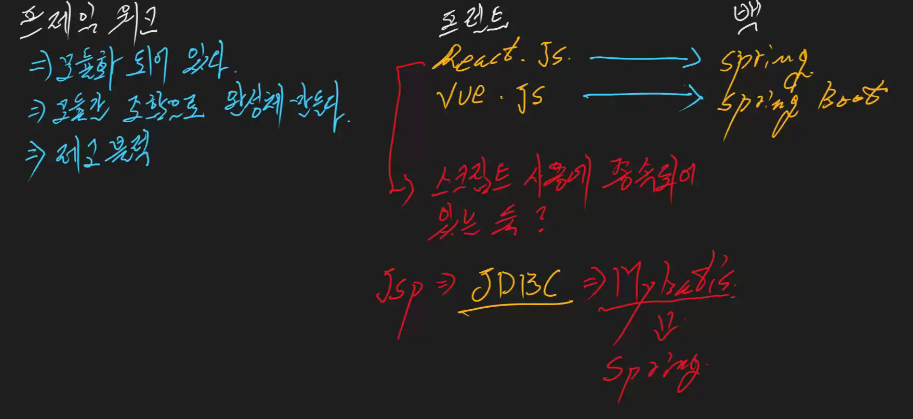 프레임 워크
⇒ 모듈화 되어 있다.
⇒ 모듈간 조합으로 완성체 만든다.
⇒ 레고 블럭
프런트
React.Js. → spring
Vue.js → Spring Boot
백
→ 스크립트 사용에 종속되어
있는 듯?
Jsp ⇒ JDBC ⇒ Mybatis
⇓
Spring